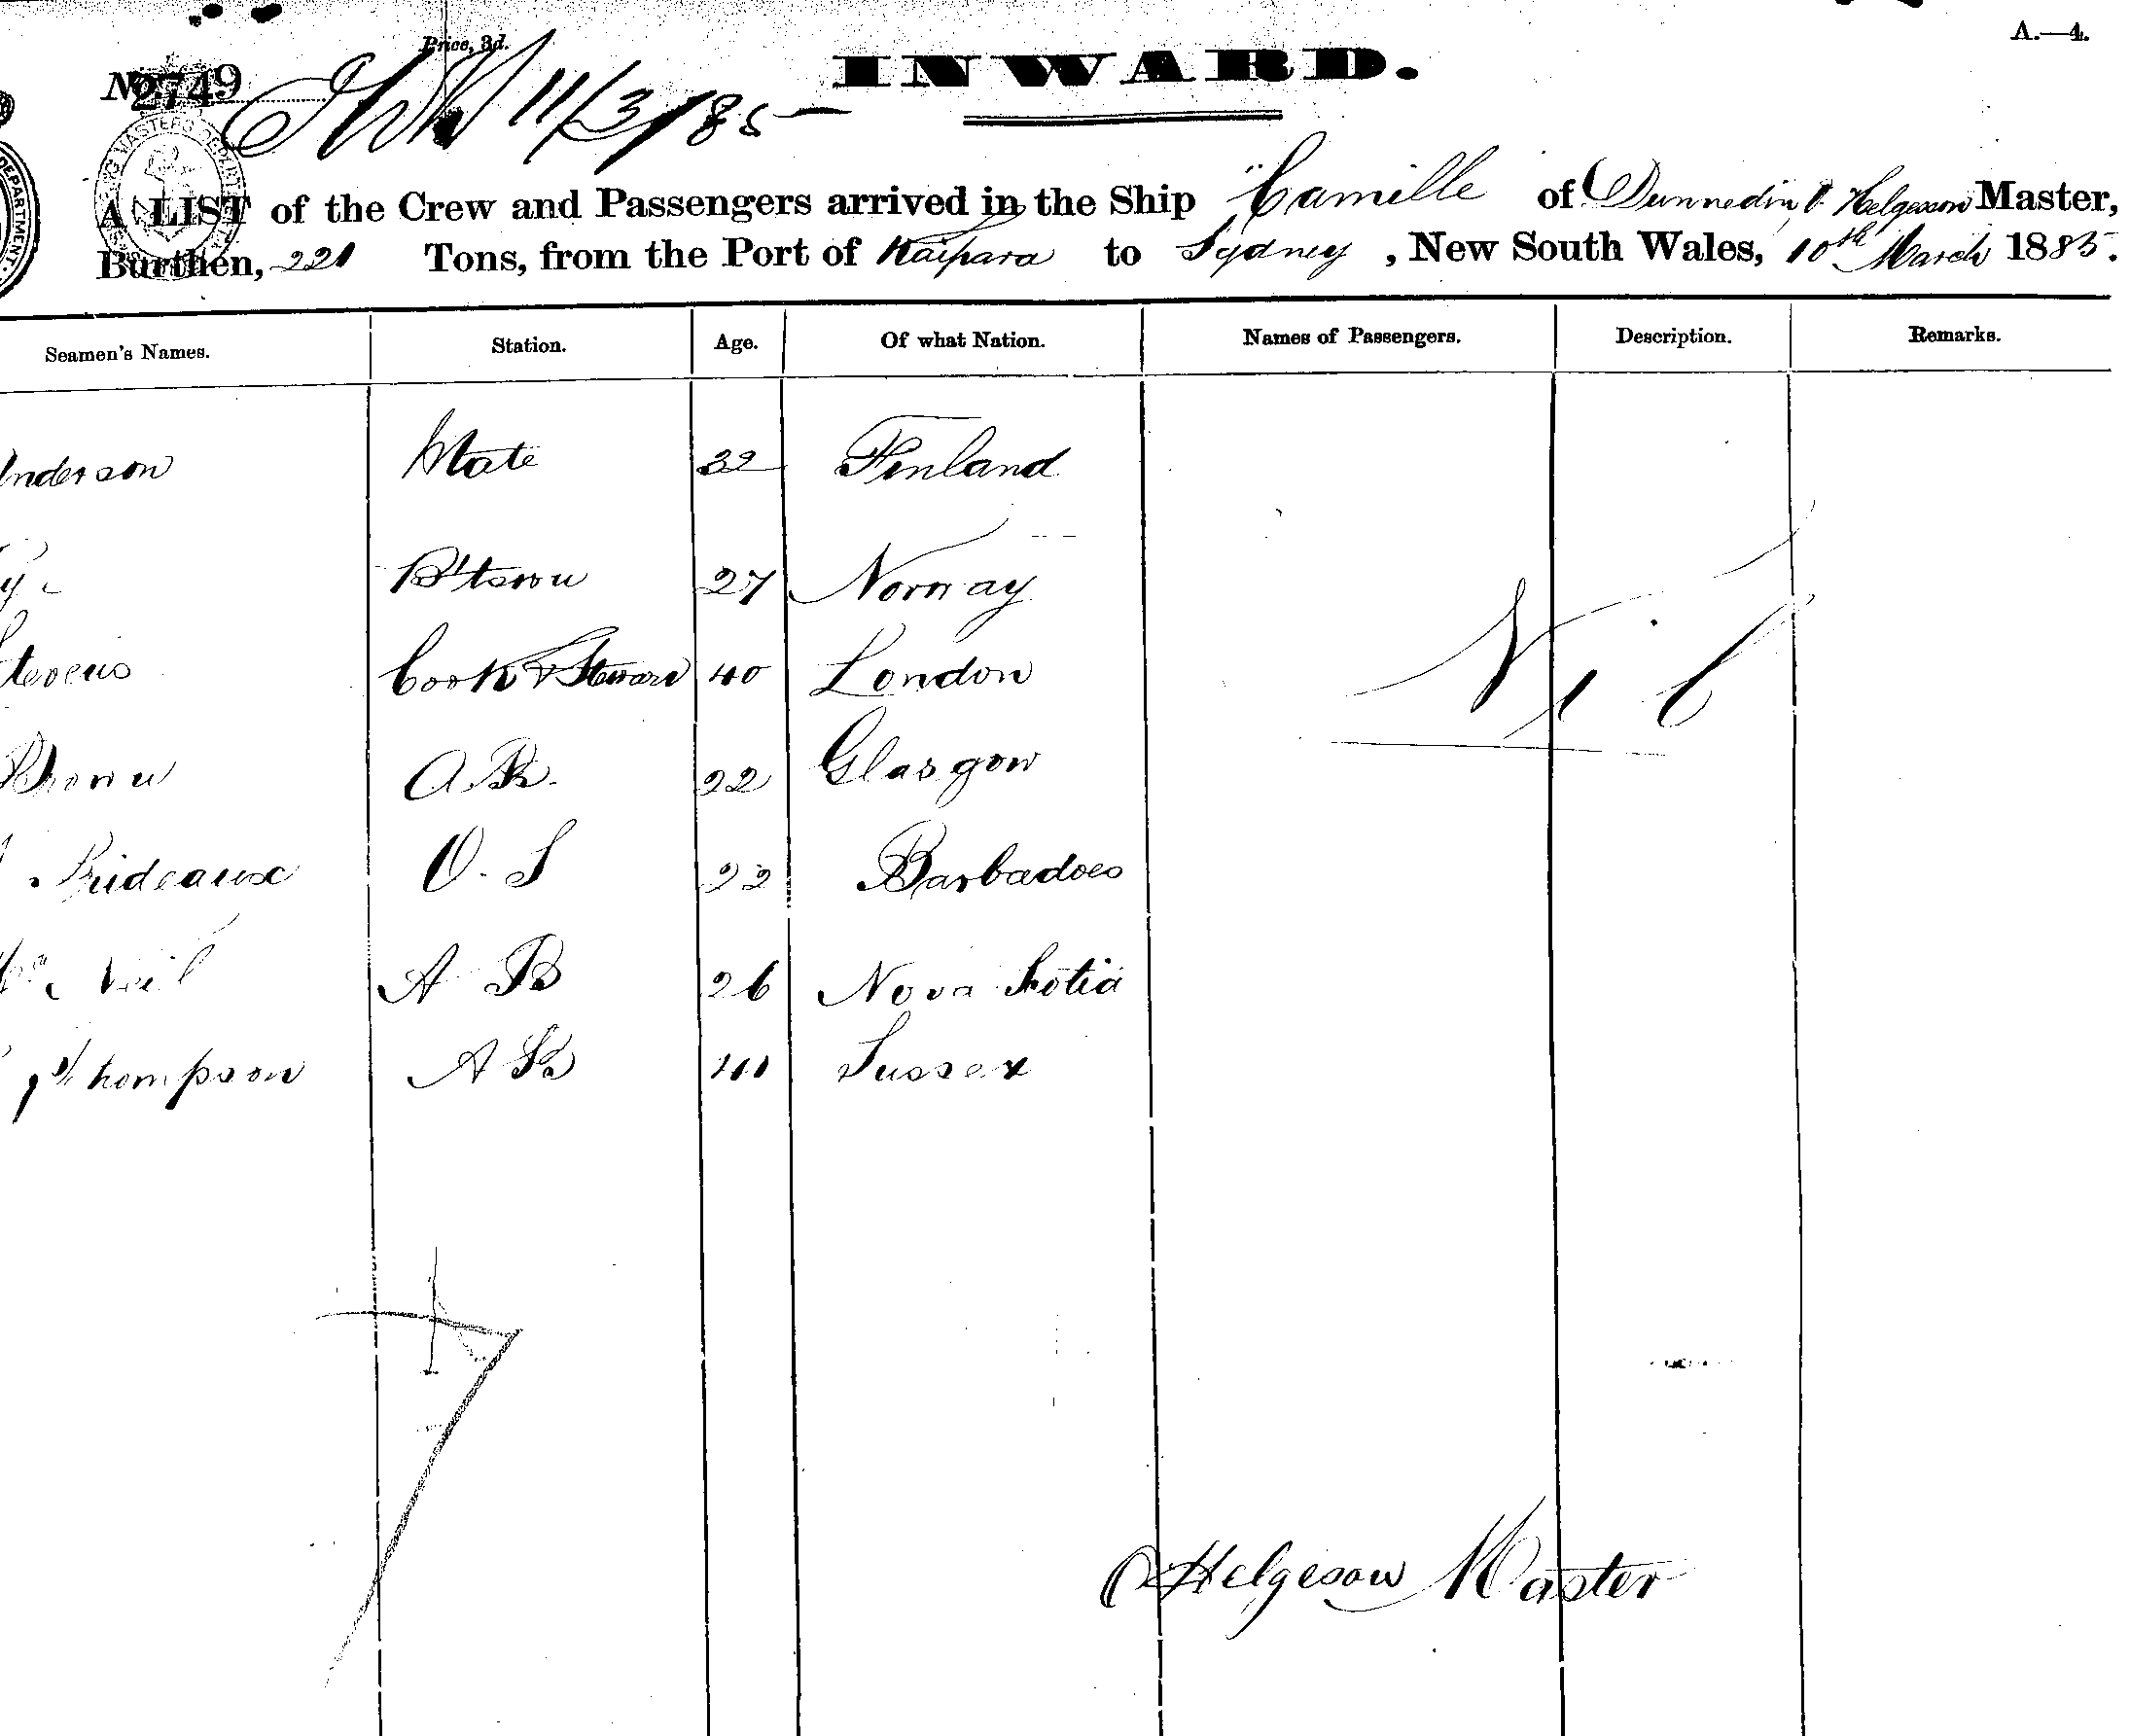 Price, 3d.
A.—4.
INWARD.
No 2749
11/3/85
A LIST of the Crew and Passengers arrived in the Ship Camille of Dunnedin Helgesson Master,
Burthen, 221 Tons, from the Port of Kaipara to Sydney, New South Wales, 10th March 1885.
Seamen's Names. Station. Age. Of what Nation. Names of Passengers. Description. Remarks.
Anderson Mate 32 Finland
27 Norway
Stevens Cook & Steward 40 London
Nil
Brown A.B. 22 Glasgow
Prideaux O.S 22 Barbadoes
Mc Neil A B 26 Nova Scotia
Thompson A B Sussex
Helgeson Master